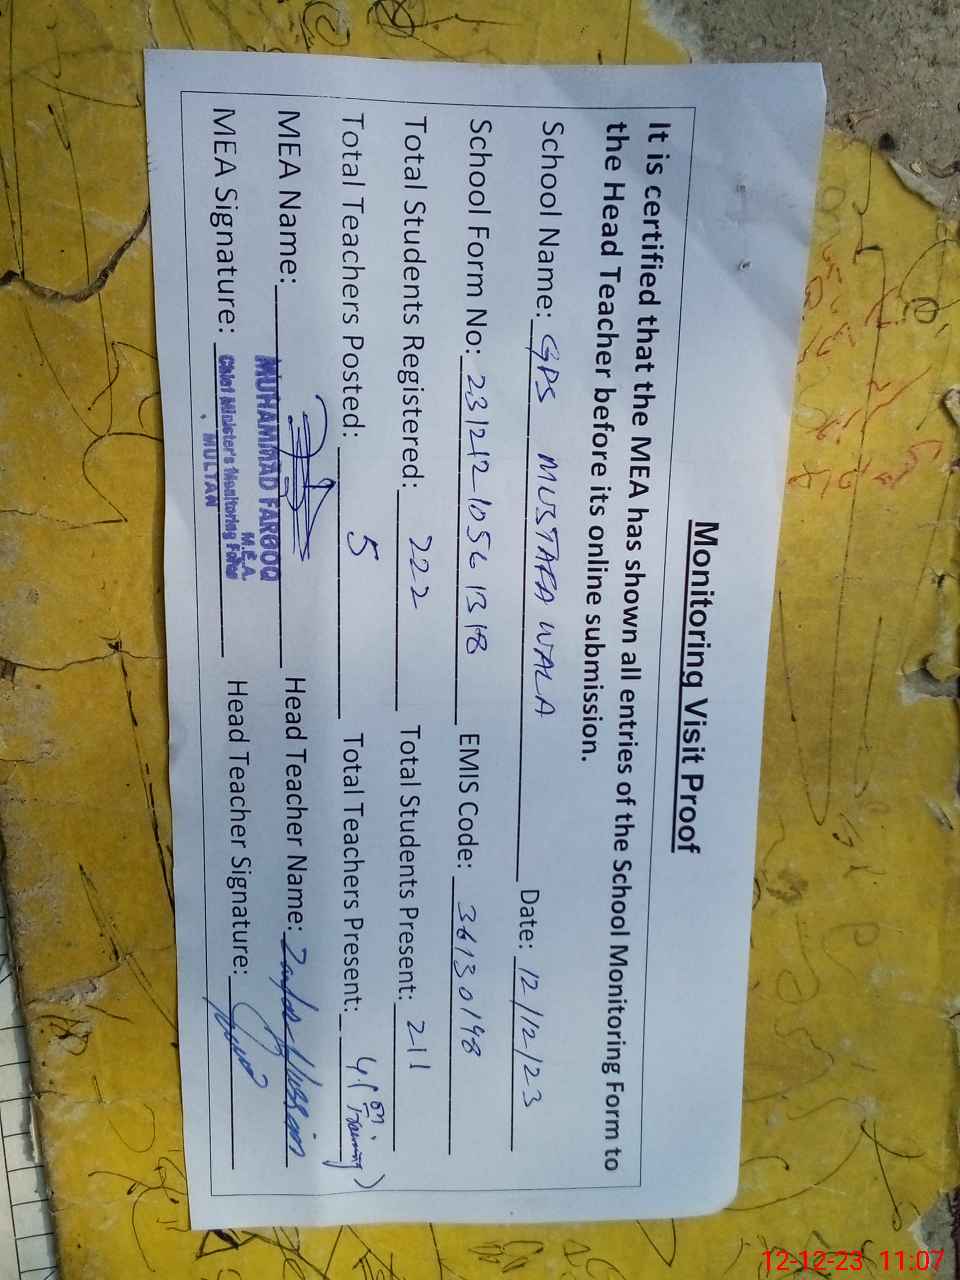 Monitoring Visit Proof
It is certified that the MEA has shown all entries of the School Monitoring Form to
the Head Teacher before its online submission.
School Name: GPS MUSTAFA WALA Date: 12/12/23
School Form No: 23121210561318 EMIS Code: 36130198
Total Students Registered: 222 Total Students Present: 211
Total Teachers Posted: 5 Total Teachers Present: 4 (1 on Training)
MEA Name: Head Teacher Name: Hussain
MUHAMMAD FAROOQ
M.E.A.
MEA Signature: Head Teacher Signature:
Chief Minister's Monitoring Force
MULTAN
12-12-23 11:07